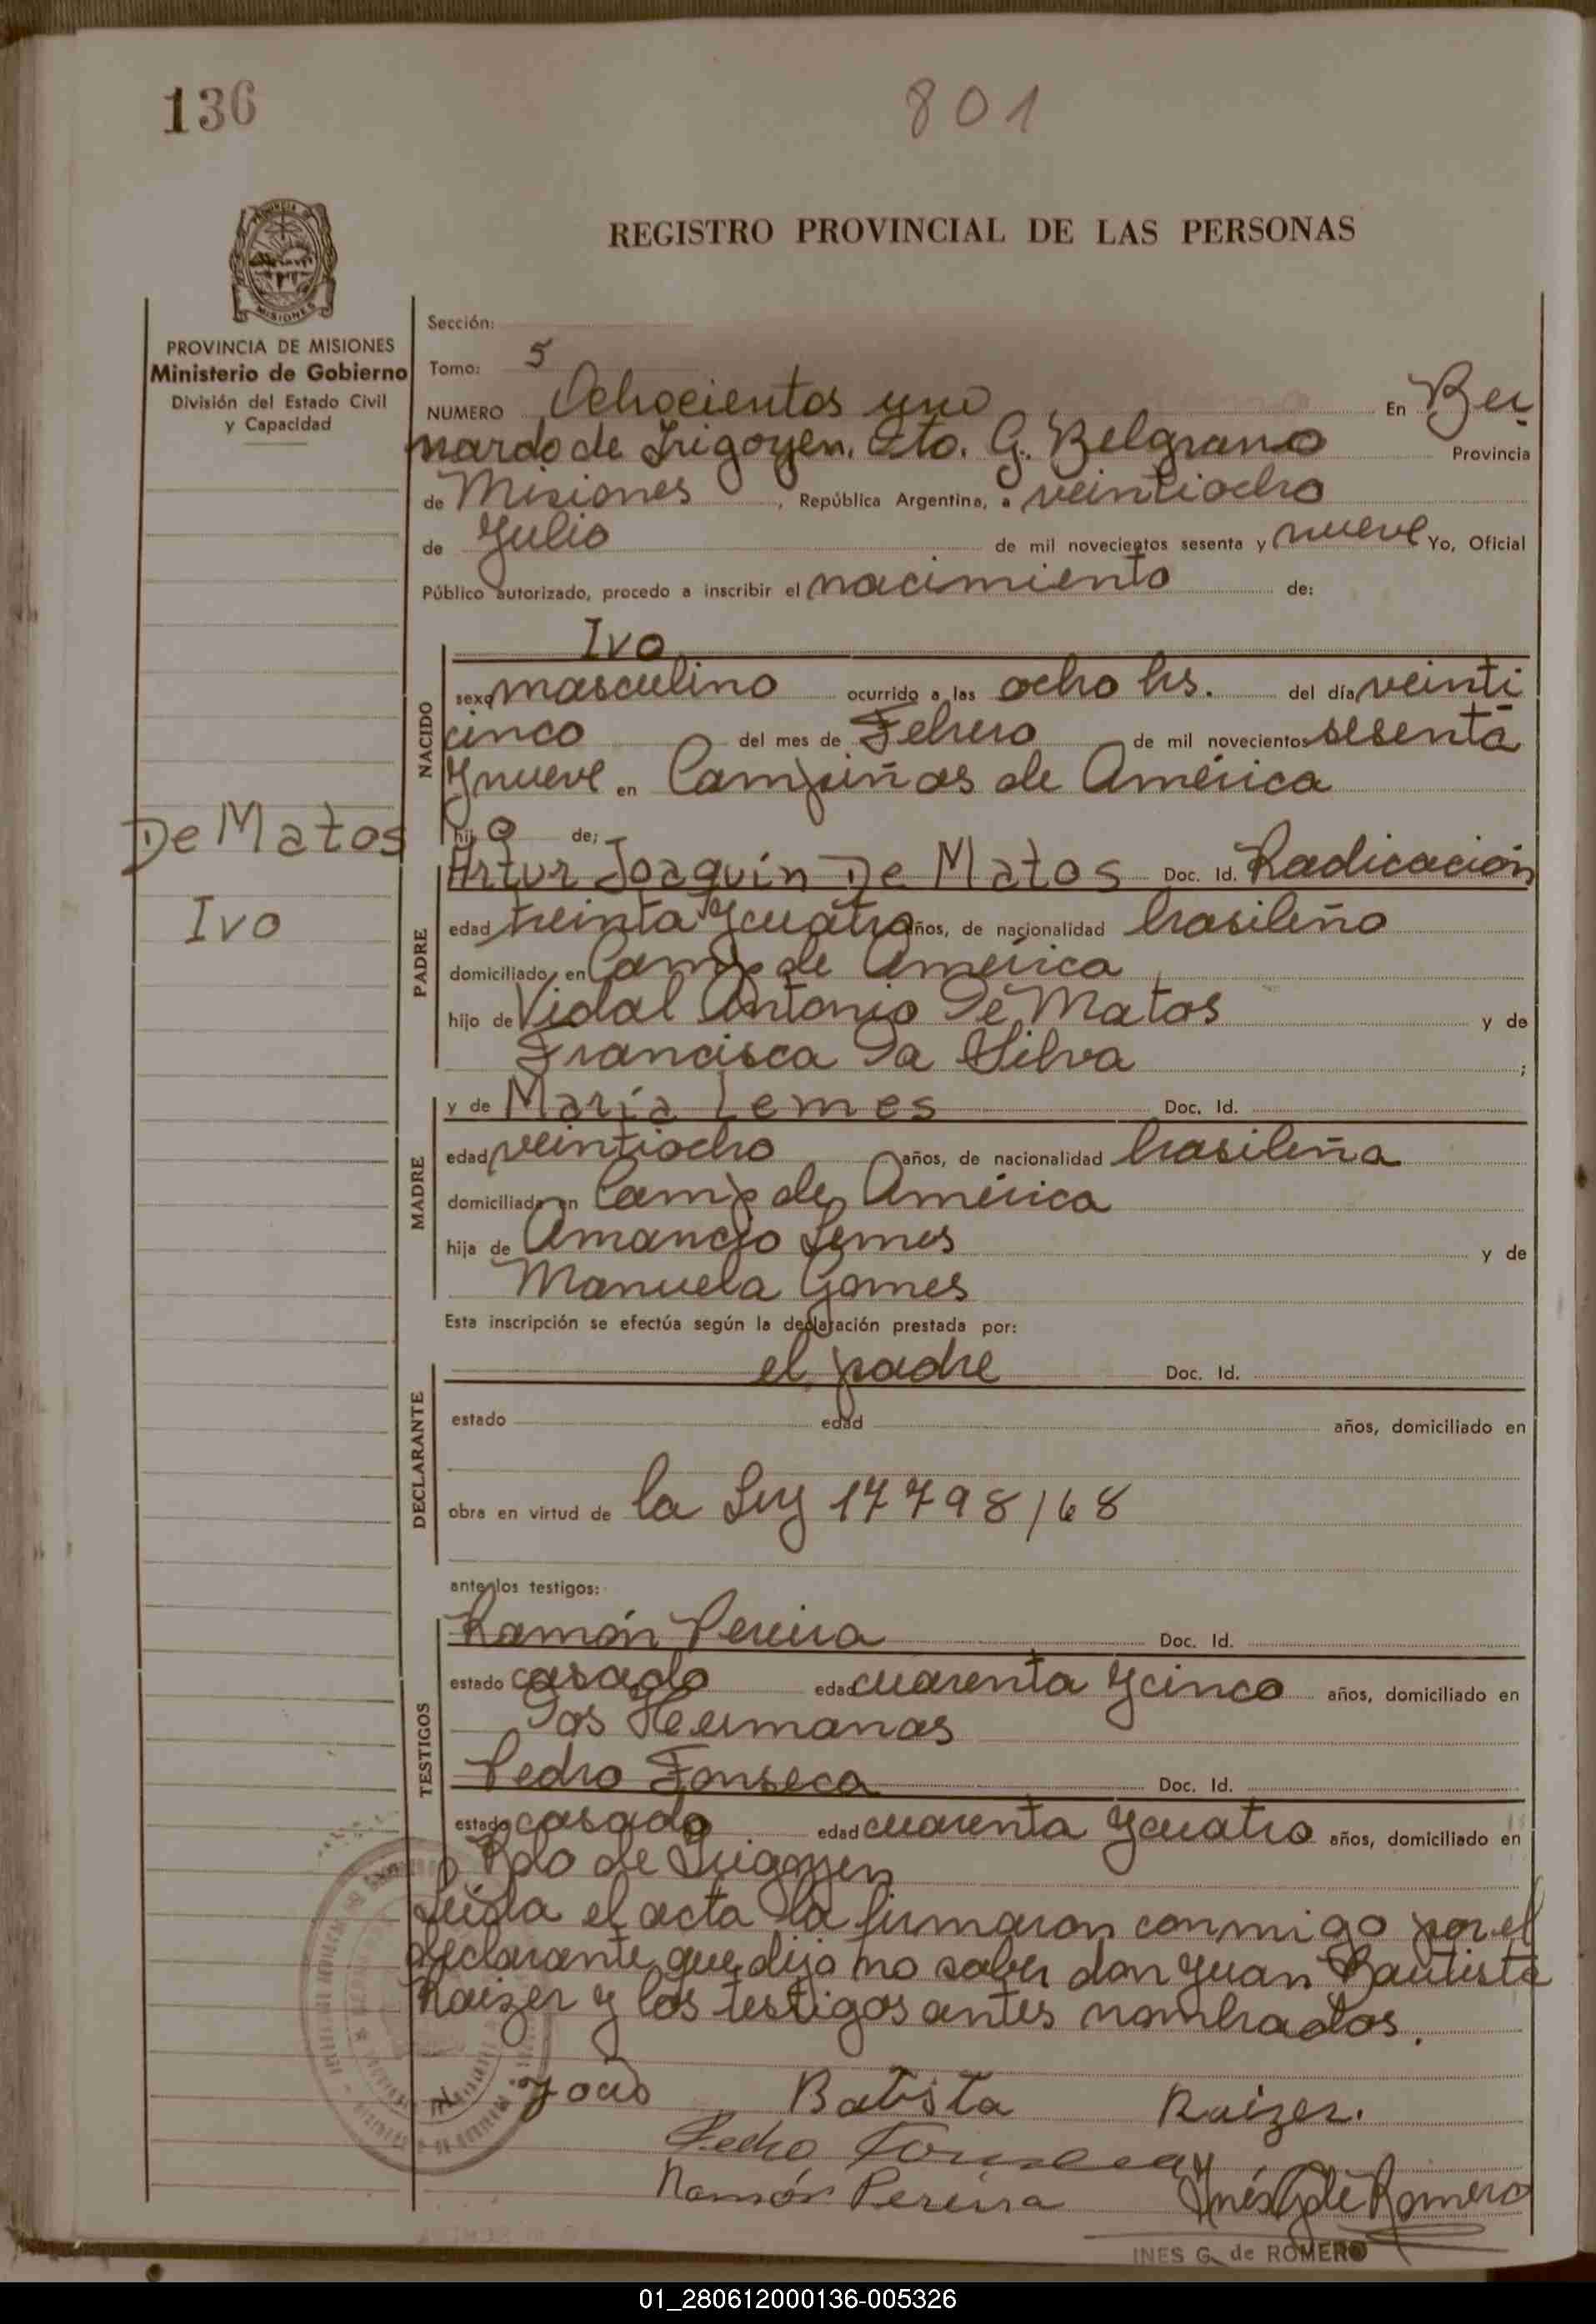 136
801
REGISTRO PROVINCIAL DE LAS PERSONAS
PROVINCIA DE MISIONES
Ministerio de Gobierno
División del Estado Civil
y Capacidad
Sección:
Tomo: 5
NUMERO Ochocientos uno En Ber
nardo de Irigoyen. Dto. G. Belgrano Provincia
de Misiones, República Argentina, a veintiocho
de Julio de mil novecientos sesenta y nueve Yo, Oficial
Público autorizado, procedo a inscribir el nacimiento de:
NACIDO
Ivo
sexo masculino ocurrido a las ocho hs. del día veinti
cinco del mes de Febrero de mil novecientos sesenta
y nueve en Campiñas de América
hijo de;
De Matos
Ivo
PADRE
Artur Joaquín De Matos Doc. Id. Radicación
edad treinta y cuatro años, de nacionalidad brasileño
domiciliado en Camp de América
hijo de Vidal Antonio De Matos y de
Francisca Da Silva ;
MADRE
y de María Lemes Doc. Id.
edad veintiocho años, de nacionalidad brasileña
domiciliada en Camp de América
hija de Amancio Lemes y de
Manuela Gomes
Esta inscripción se efectúa según la declaración prestada por:
DECLARANTE
el padre Doc. Id.
estado edad años, domiciliado en
obra en virtud de la Ley 17798/68
ante los testigos:
TESTIGOS
Ramón Pereira Doc. Id.
estado casado edad cuarenta y cinco años, domiciliado en
Dos Hermanas
Pedro Fonseca Doc. Id.
estado casado edad cuarenta y cuatro años, domiciliado en
Bdo de Irigoyen
Leída el acta la firmaron conmigo por el
declarante que dijo no saber don Juan Bautista
Raizer y los testigos antes nombrados.
João Batista Raizer.
Pedro Fonseca
Ramón Pereira Inés G de Romero
INES G. de ROMERO
01_280612000136-005326